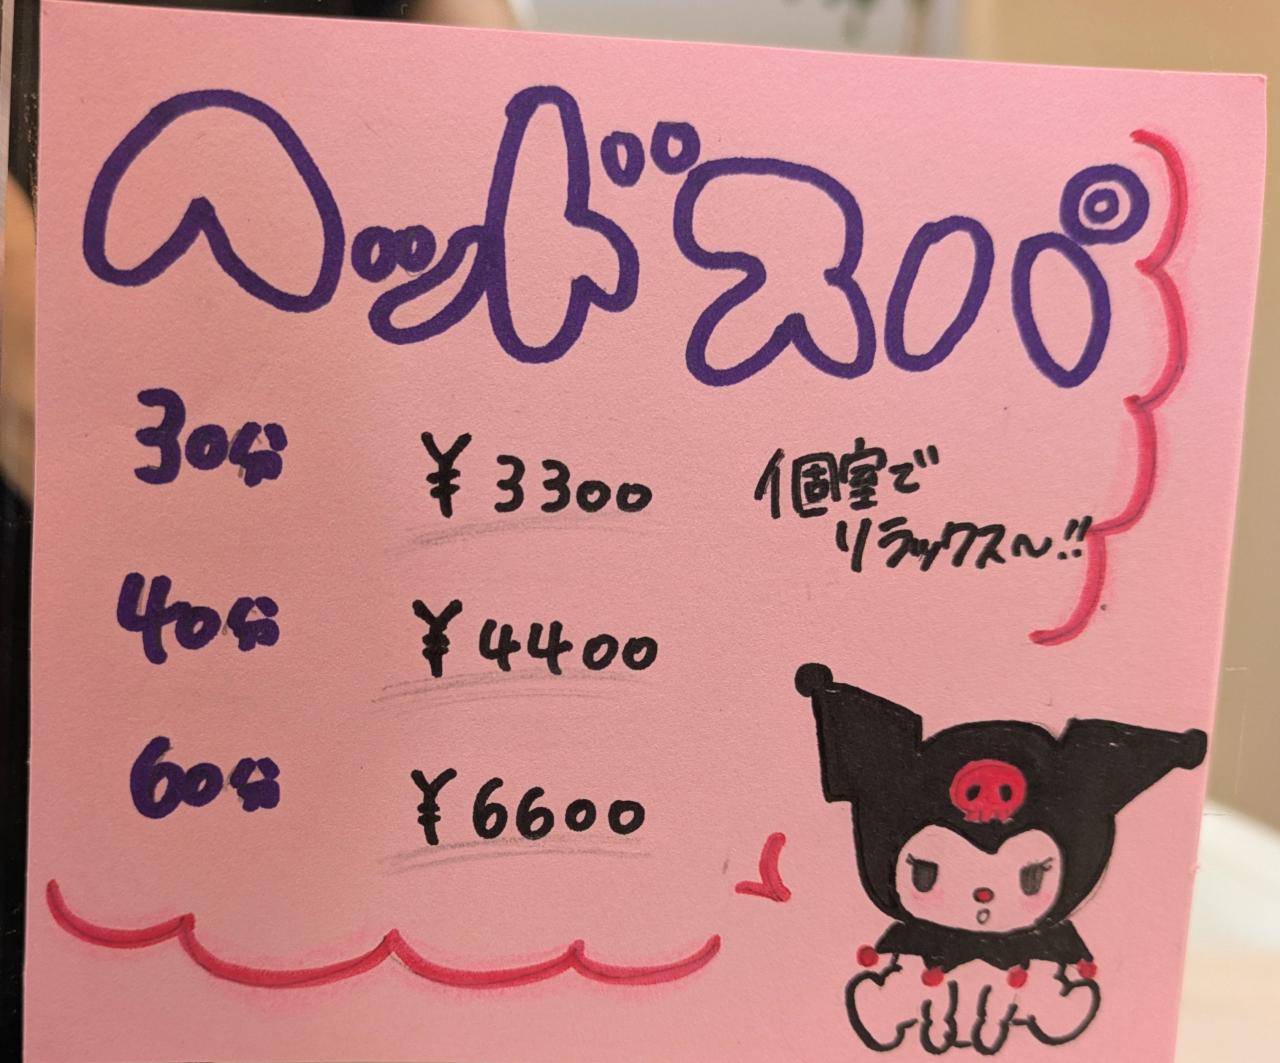 ヘッドスパ
30分 ¥3300
個室で
リラックス〜!!
40分 ¥4400
60分 ¥6600